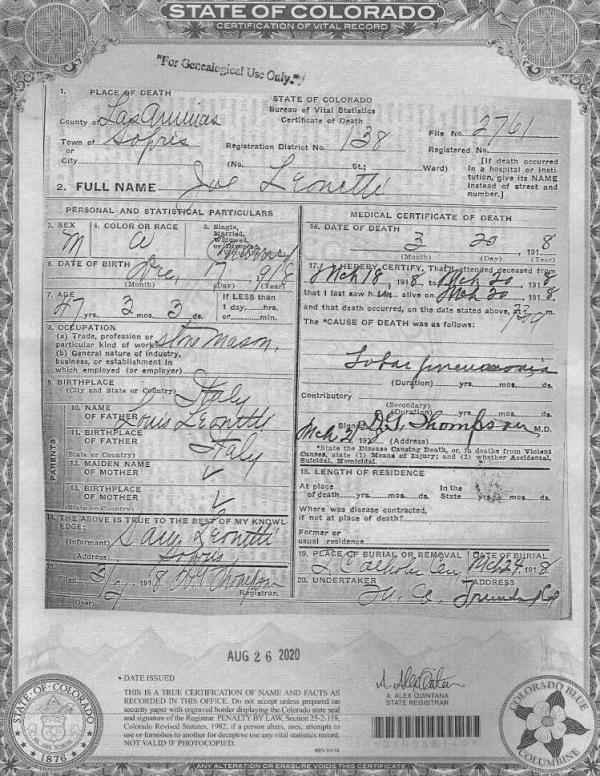 STATE OF COLORADO
CERTIFICATION OF VITAL RECORD
"For Genealogical Use Only."
1. PLACE OF DEATH
STATE OF COLORADO
Bureau of Vital Statistics
Certificate of Death
County of Las Animas
File No. 2761
Town of Sopris
or
Registration District No. 138
Registered No.
City
(No. St.; Ward)
[If death occurred in a hospital or institution, give its NAME instead of street and number.]
2. FULL NAME Joe Leonetti
PERSONAL AND STATISTICAL PARTICULARS
3. SEX M
4. COLOR OR RACE W
5. Single, Married, Widowed, or
6. DATE OF BIRTH Dec. 17
(Month) (Day) (Year)
7. AGE
47 yrs. 3 mos. 3 ds.
If LESS than
1 day, hrs.
or min.
8. OCCUPATION
(a) Trade, profession or
particular kind of work stone mason.
(b) General nature of industry,
business, or establishment in
which employed (or employer)
9. BIRTHPLACE
(City and State or Country) Italy
PARENTS
10. NAME
OF FATHER Louis Leonetti
11. BIRTHPLACE
OF FATHER Italy
(State or Country)
12. MAIDEN NAME
OF MOTHER
13. BIRTHPLACE
OF MOTHER
(State or Country)
14. THE ABOVE IS TRUE TO THE BEST OF MY KNOWLEDGE:
(Informant) Leonetti
(Address) Sopris
Filed 191 8 Thompson
Registrar.
(Over)
MEDICAL CERTIFICATE OF DEATH
16. DATE OF DEATH
3 20 1918
(Month) (Day) (Year)
17. I HEREBY CERTIFY, That I attended deceased from
Mch 18, 1918, to Mch 20, 1918,
that I last saw him alive on Mch 20, 1918,
and that death occurred, on the date stated above, at
The *CAUSE OF DEATH was as follows:
Lobar pneumonia
(Duration) yrs. mos. ds.
Contributory
(Secondary)
(Duration) yrs. mos. ds.
Thompson M.D.
Mch 191 (Address)
*State the Disease Causing Death, or, in deaths from Violent
Causes, state (1) Means of Injury; and (2) whether Accidental,
Suicidal, Homicidal.
18. LENGTH OF RESIDENCE
At place
of death yrs. mos. ds.
In the
State yrs. mos. ds.
Where was disease contracted,
if not at place of death?
Former or
usual residence
19. PLACE OF BURIAL OR REMOVAL
Catholic Cem
DATE OF BURIAL
Mch 24, 1918
20. UNDERTAKER
ADDRESS
AUG 26 2020
* DATE ISSUED
THIS IS A TRUE CERTIFICATION OF NAME AND FACTS AS
RECORDED IN THIS OFFICE. Do not accept unless prepared on
security paper with engraved border displaying the Colorado state seal
and signature of the Registrar. PENALTY BY LAW, Section 25-2-118,
Colorado Revised Statutes, 1982, if a person alters, uses, attempts to
use or furnishes to another for deceptive use any vital statistics record.
NOT VALID IF PHOTOCOPIED.
A. ALEX QUINTANA
STATE REGISTRAR
STATE OF COLORADO
1876
COLORADO BLUE
COLUMBINE
ANY ALTERATION OR ERASURE VOIDS THIS CERTIFICATE